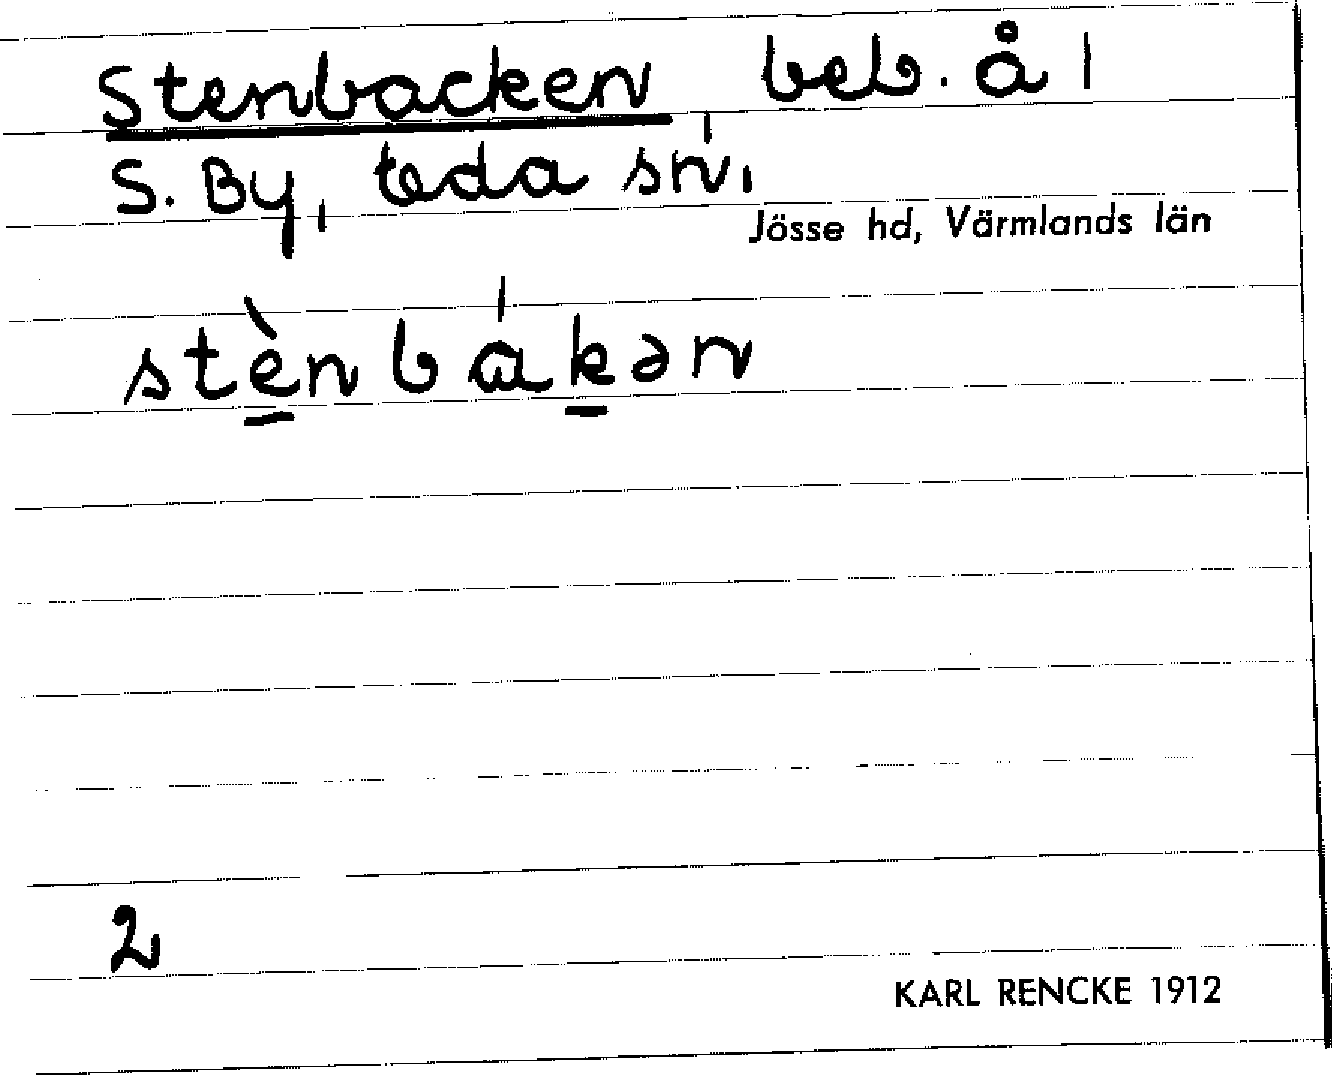 Stenbacken, beb. å 1
S. By, Eda sn.
Jösse hd, Värmlands län
stènbákən
2
KARL RENCKE 1912